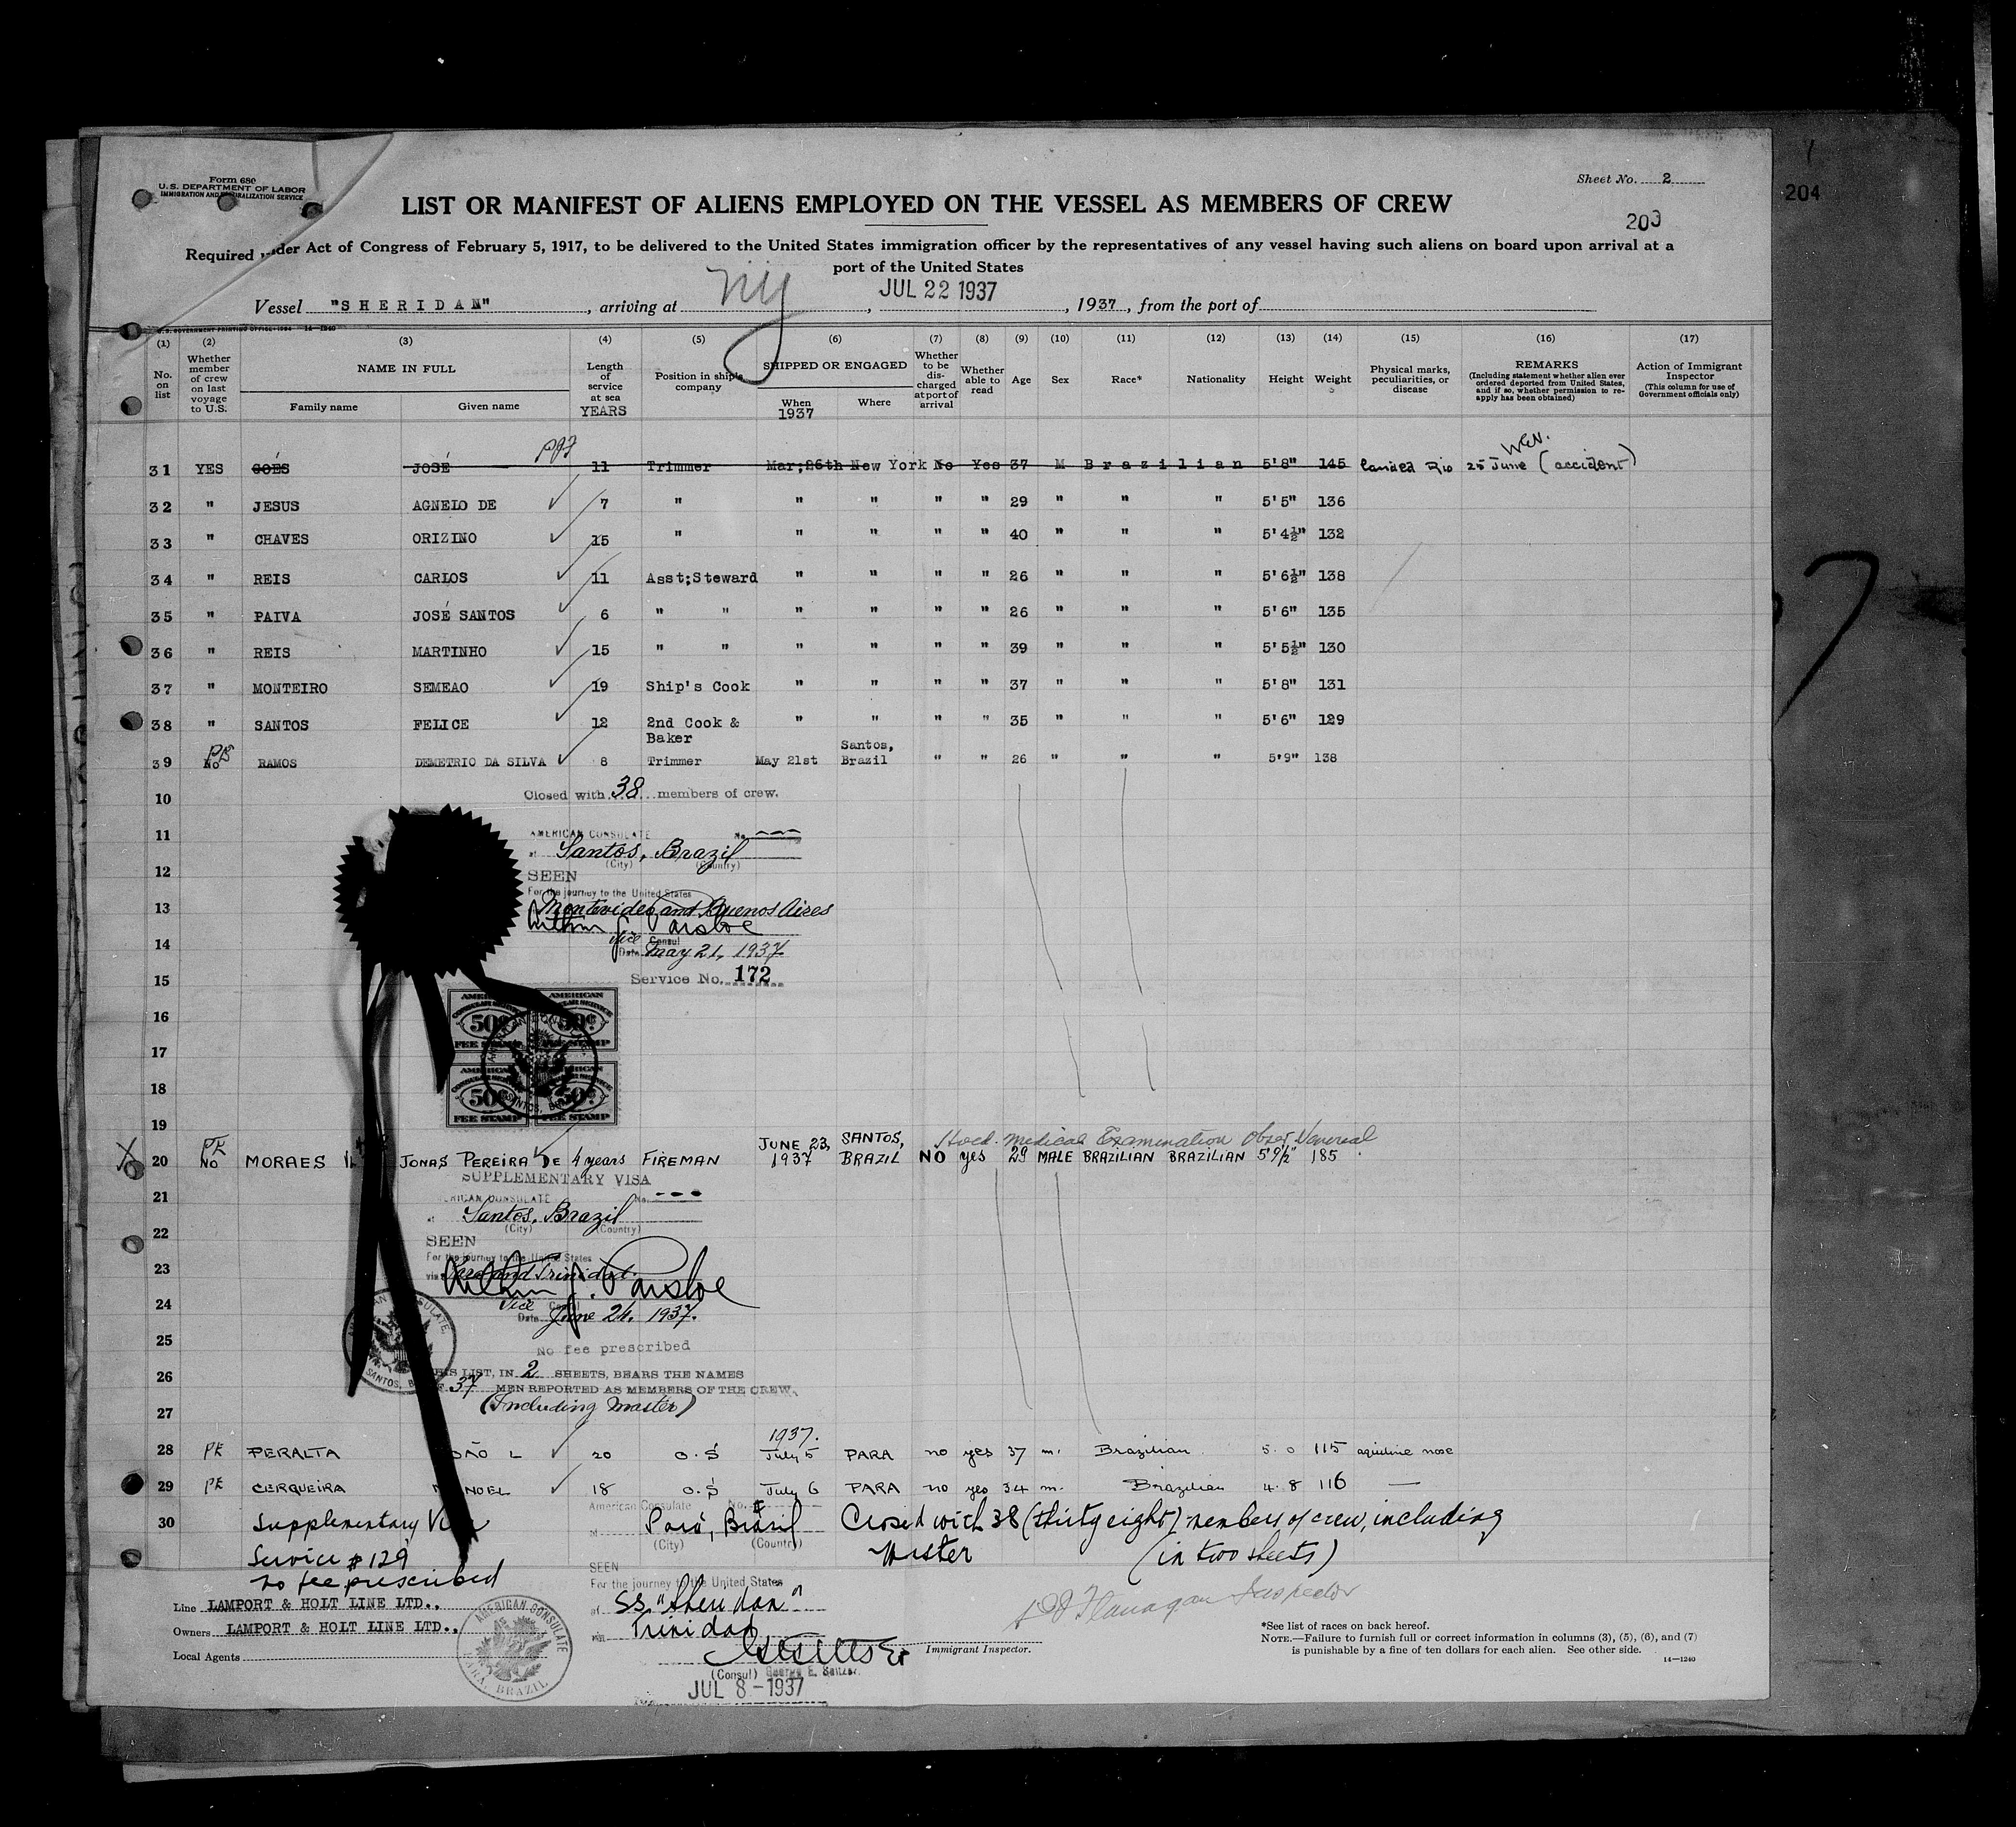 204
Form 680
U.S. DEPARTMENT OF LABOR
IMMIGRATION AND NATURALIZATION SERVICE
Sheet No. 2
LIST OR MANIFEST OF ALIENS EMPLOYED ON THE VESSEL AS MEMBERS OF CREW
203
Required under Act of Congress of February 5, 1917, to be delivered to the United States immigration officer by the representatives of any vessel having such aliens on board upon arrival at a
port of the United States
Vessel "SHERIDAN", arriving at NY, JUL 22 1937, 1937, from the port of
U.S. GOVERNMENT PRINTING OFFICE: 1934 14—1240
(1) (2) (3) (4) (5) (6) (7) (8) (9) (10) (11) (12) (13) (14) (15) (16) (17)
No. on list
Whether member of crew on last voyage to U.S.
NAME IN FULL
Family name Given name
Length of service at sea
YEARS
Position in ship's company
SHIPPED OR ENGAGED
When Where
1937
Whether to be discharged at port of arrival
Whether able to read
Age Sex Race* Nationality Height Weight
Physical marks, peculiarities, or disease
REMARKS
(Including statement whether alien ever ordered deported from United States, and if so, whether permission to reapply has been obtained)
Action of Immigrant Inspector
(This column for use of Government officials only)
31 YES GOÉS JOSÉ 11 Trimmer Mar;26th New York No Yes 37 M Brazilian 5'8" 145 landed Rio 25 June (accident)
32 " JESUS AGNELO DE 7 " " " " " 29 " " " 5'5" 136
33 " CHAVES ORIZINO 15 " " " " " 40 " " " 5'4½" 132
34 " REIS CARLOS 11 Asst;Steward " " " " 26 " " " 5'6½" 138
35 " PAIVA JOSÉ SANTOS 6 " " " " " " 26 " " " 5'6" 135
36 " REIS MARTINHO 15 " " " " " " 39 " " " 5'5½" 130
37 " MONTEIRO SEMEAO 19 Ship's Cook " " " " 37 " " " 5'8" 131
38 " SANTOS FELICE 12 2nd Cook & Baker " " " " 35 " " " 5'6" 129
39 No RAMOS DEMETRIO DA SILVA 8 Trimmer May 21st Santos, Brazil " " 26 " " " 5'9" 138
10 Closed with 38 members of crew.
11 AMERICAN CONSULATE No.
at Santos, Brazil
(City) (Country)
12 SEEN
For the journey to the United States
13 Montevideo and Buenos Aires
Vice Consul
14 Date May 21, 1937
15 Service No. 172
16
AMERICAN CONSULAR SERVICE 50¢ FEE STAMP
AMERICAN CONSULAR SERVICE 50¢ FEE STAMP
17
AMERICAN CONSULAR SERVICE 50¢ FEE STAMP
AMERICAN CONSULAR SERVICE 50¢ FEE STAMP
AMERICAN CONSULATE SANTOS, BRAZIL
18
19 Medical Examination Obser. Venereal
20 PE No MORAES JONAS PEREIRA DE 4 years FIREMAN JUNE 23, 1937 SANTOS, BRAZIL NO yes 29 MALE BRAZILIAN BRAZILIAN 5'9½" 185
SUPPLEMENTARY VISA
21 AMERICAN CONSULATE No. ---
at Santos, Brazil
22 (City) (Country)
SEEN
For the journey to the United States
23 via Para and Trinidad.
24 Vice Consul
Date June 24, 1937.
25 No fee prescribed
AMERICAN CONSULATE SANTOS, BRAZIL
26 THIS LIST, IN 2 SHEETS, BEARS THE NAMES
OF 37 MEN REPORTED AS MEMBERS OF THE CREW.
27 (Including Master)
1937.
28 PE PERALTA JOÃO L 20 O.S July 5 PARA no yes 37 m. Brazilian 5.0 115 aquiline nose
29 PE CERQUEIRA MANOEL 18 O.S July 6 PARA no yes 34 m. Brazilian 4.8 116 —
30 Supplementary Visa
Service # 129
no fee prescribed
American Consulate No.
at Pará, Brasil
(City) (Country)
Closed with 38 (thirty eight) members of crew, including
Master (in two sheets)
SEEN
For the journey to the United States
of SS. "Sheridan"
via Trinidad
(Consul) George E. Seltzer.
JUL 8-1937
AMERICAN CONSULATE PARA, BRAZIL
Line LAMPORT & HOLT LINE LTD.,
Owners LAMPORT & HOLT LINE LTD.,
Local Agents
Flanagan Inspector
Immigrant Inspector.
*See list of races on back hereof.
NOTE.—Failure to furnish full or correct information in columns (3), (5), (6), and (7)
is punishable by a fine of ten dollars for each alien. See other side.
14—1240